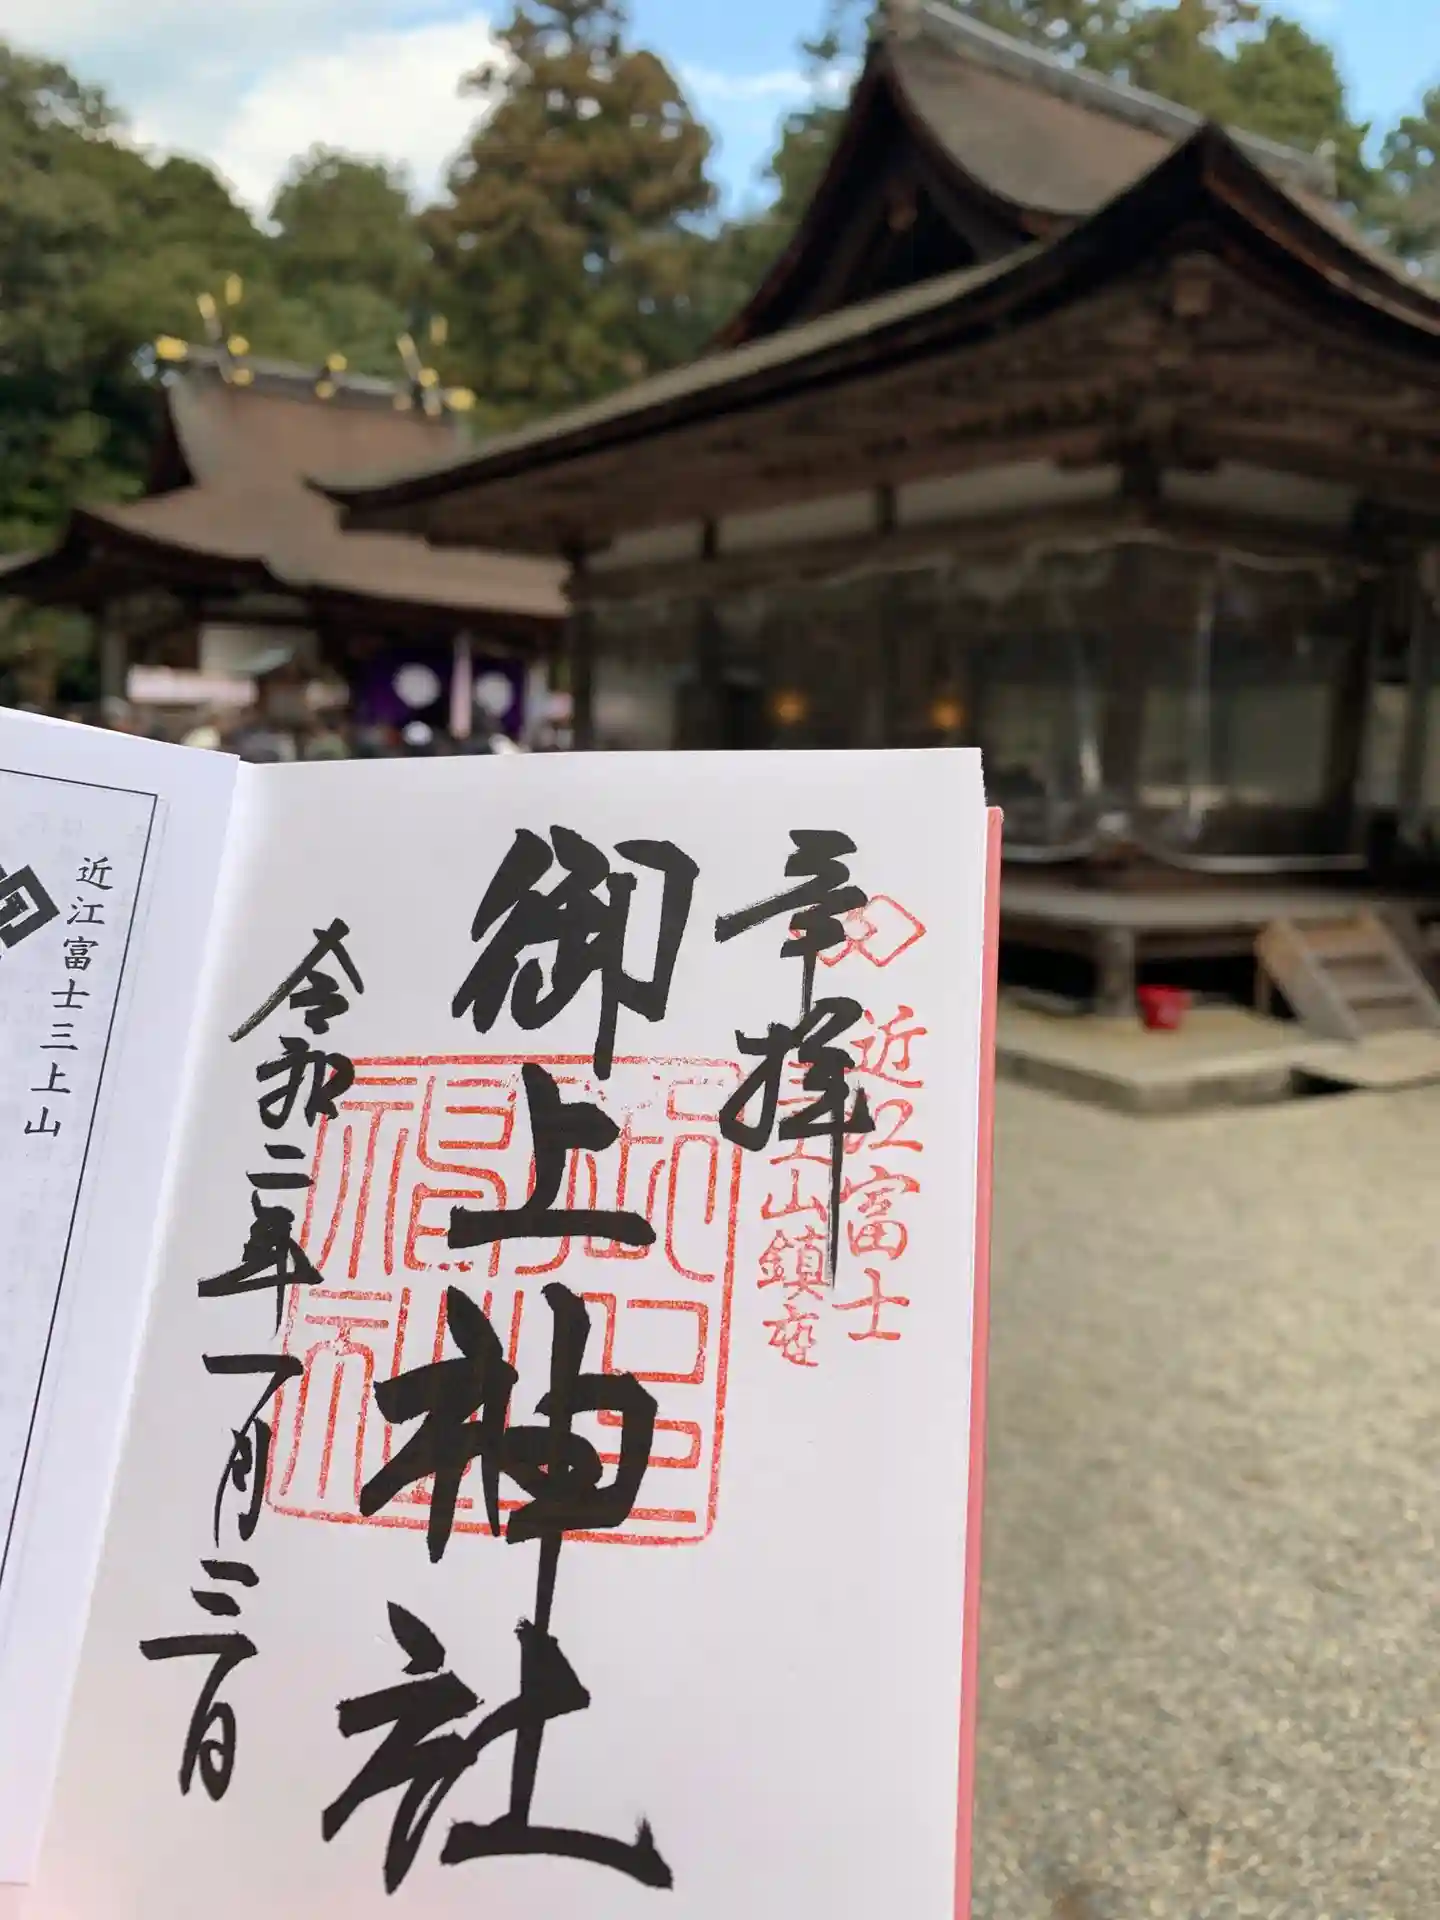 奉拝
近江富士
三上山鎮座
御上神社
令和二年一月三日
近江富士三上山